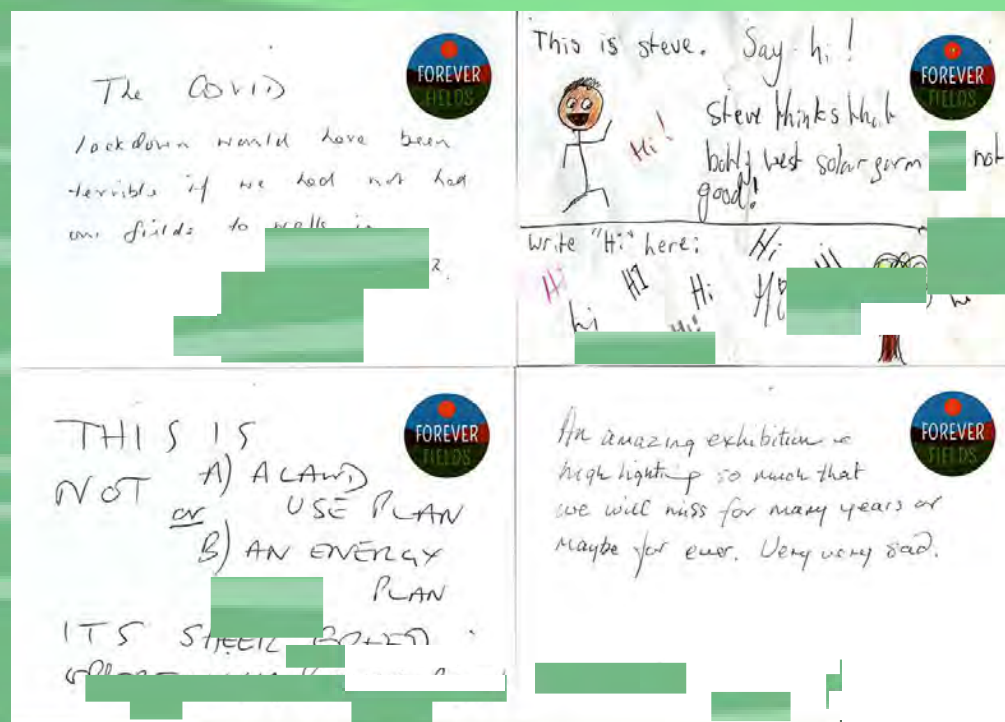 The COVID
lockdown would have been
terrible if we had not had
our fields to walk in
FOREVER
FIELDS
This is steve. Say hi!
Hi!
steve thinks that
botley west solar farm not
good!
FOREVER
FIELDS
write "Hi" here:
Hi
Hi
HI
Hi
hi
Hi!
THIS IS
NOT A) A LAND
or USE PLAN
B) AN ENERGY
PLAN
ITS SHEER GREED
FOREVER
FIELDS
An amazing exhibition
highlighting so much that
we will miss for many years or
maybe for ever. Very very sad.
FOREVER
FIELDS